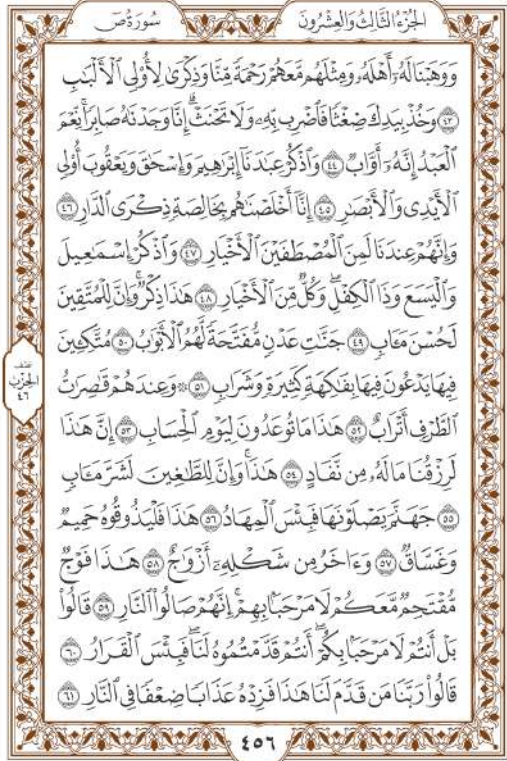 الجُزْءُ الثَّالِثُ وَالعِشْرُونَ سُورَةُ صٓ
وَوَهَبۡنَا لَهُۥٓ أَهۡلَهُۥ وَمِثۡلَهُم مَّعَهُمۡ رَحۡمَةٗ مِّنَّا وَذِكۡرَىٰ لِأُوْلِي ٱلۡأَلۡبَٰبِ
٤٣ وَخُذۡ بِيَدِكَ ضِغۡثٗا فَٱضۡرِب بِّهِۦ وَلَا تَحۡنَثۡۗ إِنَّا وَجَدۡنَٰهُ صَابِرٗاۚ نِّعۡمَ
ٱلۡعَبۡدُ إِنَّهُۥٓ أَوَّابٞ ٤٤ وَٱذۡكُرۡ عِبَٰدَنَآ إِبۡرَٰهِيمَ وَإِسۡحَٰقَ وَيَعۡقُوبَ أُوْلِي
ٱلۡأَيۡدِي وَٱلۡأَبۡصَٰرِ ٤٥ إِنَّآ أَخۡلَصۡنَٰهُم بِخَالِصَةٖ ذِكۡرَى ٱلدَّارِ ٤٦
وَإِنَّهُمۡ عِندَنَا لَمِنَ ٱلۡمُصۡطَفَيۡنَ ٱلۡأَخۡيَارِ ٤٧ وَٱذۡكُرۡ إِسۡمَٰعِيلَ
وَٱلۡيَسَعَ وَذَا ٱلۡكِفۡلِۖ وَكُلّٞ مِّنَ ٱلۡأَخۡيَارِ ٤٨ هَٰذَا ذِكۡرٞۚ وَإِنَّ لِلۡمُتَّقِينَ
لَحُسۡنَ مَـَٔابٖ ٤٩ جَنَّٰتِ عَدۡنٖ مُّفَتَّحَةٗ لَّهُمُ ٱلۡأَبۡوَٰبُ ٥٠ مُتَّكِـِٔينَ
فِيهَا يَدۡعُونَ فِيهَا بِفَٰكِهَةٖ كَثِيرَةٖ وَشَرَابٖ ٥١ ۞ وَعِندَهُمۡ قَٰصِرَٰتُ
ٱلطَّرۡفِ أَتۡرَابٌ ٥٢ هَٰذَا مَا تُوعَدُونَ لِيَوۡمِ ٱلۡحِسَابِ ٥٣ إِنَّ هَٰذَا
لَرِزۡقُنَا مَا لَهُۥ مِن نَّفَادٍ ٥٤ هَٰذَاۚ وَإِنَّ لِلطَّٰغِينَ لَشَرَّ مَـَٔابٖ
٥٥ جَهَنَّمَ يَصۡلَوۡنَهَا فَبِئۡسَ ٱلۡمِهَادُ ٥٦ هَٰذَا فَلۡيَذُوقُوهُ حَمِيمٞ
وَغَسَّاقٞ ٥٧ وَءَاخَرُ مِن شَكۡلِهِۦٓ أَزۡوَٰجٌ ٥٨ هَٰذَا فَوۡجٞ
مُّقۡتَحِمٞ مَّعَكُمۡ لَا مَرۡحَبَۢا بِهِمۡۚ إِنَّهُمۡ صَالُواْ ٱلنَّارِ ٥٩ قَالُواْ
بَلۡ أَنتُمۡ لَا مَرۡحَبَۢا بِكُمۡۖ أَنتُمۡ قَدَّمۡتُمُوهُ لَنَاۖ فَبِئۡسَ ٱلۡقَرَارُ ٦٠
قَالُواْ رَبَّنَا مَن قَدَّمَ لَنَا هَٰذَا فَزِدۡهُ عَذَابٗا ضِعۡفٗا فِي ٱلنَّارِ ٦١
نصف
الحِزْب
٤٦
٤٥٦